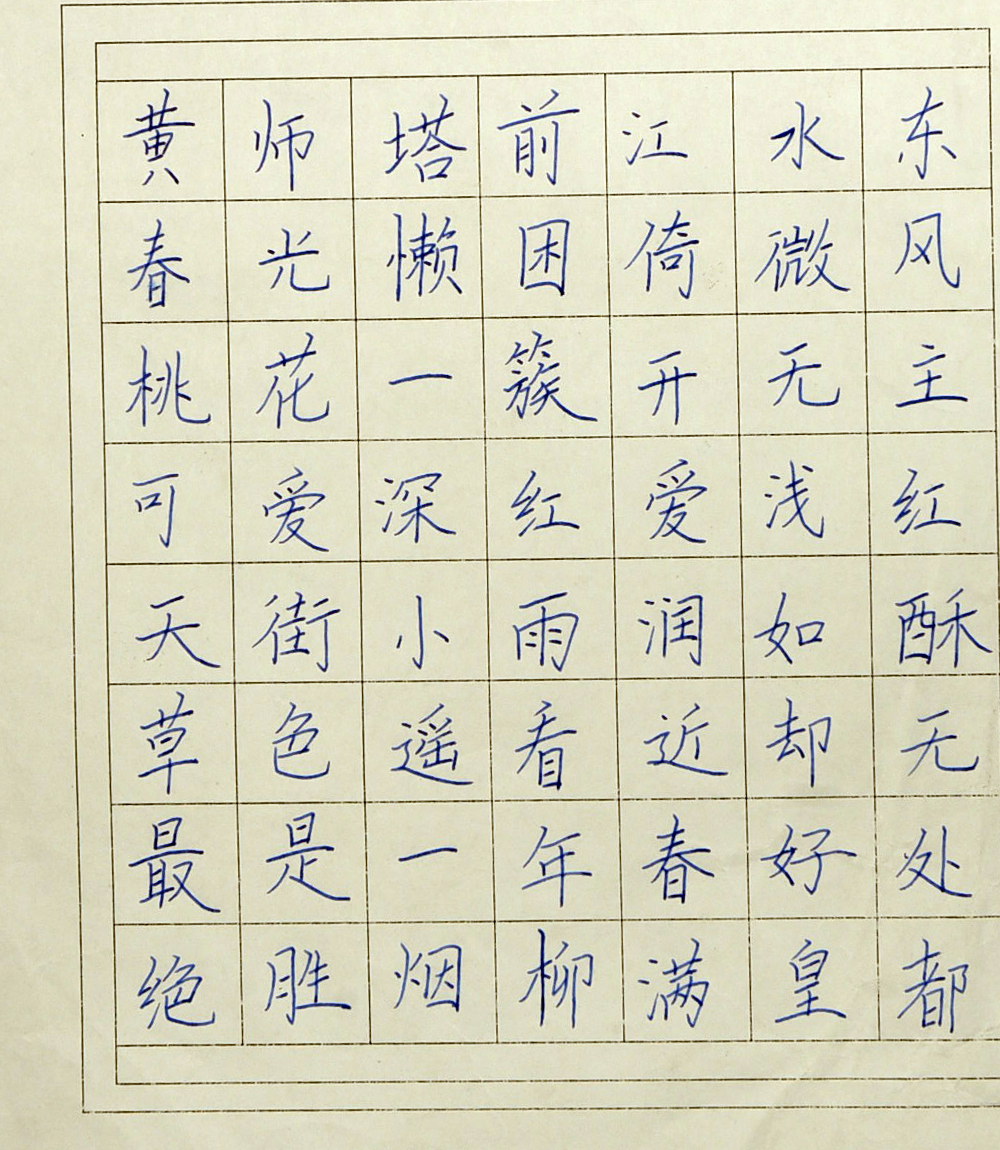 黄师塔前江水东
春光懒困倚微风
桃花一簇开无主
可爱深红爱浅红
天街小雨润如酥
草色遥看近却无
最是一年春好处
绝胜烟柳满皇都